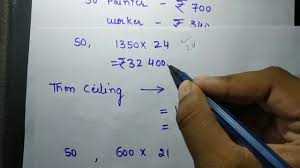 So Painter - ₹ 700
Worker - ₹ 340
So, 1350 × 24
= ₹ 32 400
Then Ceiling →
=
=
So, 600 × 21